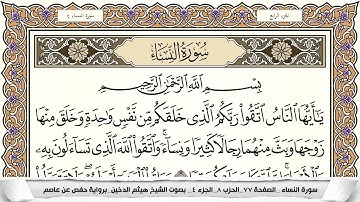 الجزء الرابع
سورة النساء ٤
سُورَةُ النِّسَاءِ
بِسْمِ اللَّهِ الرَّحْمَٰنِ الرَّحِيمِ
يَا أَيُّهَا النَّاسُ اتَّقُوا رَبَّكُمُ الَّذِي خَلَقَكُم مِّن نَّفْسٍ وَاحِدَةٍ وَخَلَقَ مِنْهَا
زَوْجَهَا وَبَثَّ مِنْهُمَا رِجَالًا كَثِيرًا وَنِسَاءً ۚ وَاتَّقُوا اللَّهَ الَّذِي تَسَاءَلُونَ بِهِ
سورة النساء _ الصفحة ٧٧_ الحزب ٨_ الجزء ٤ _ بصوت الشيخ هيثم الدخين_ برواية حفص عن عاصم